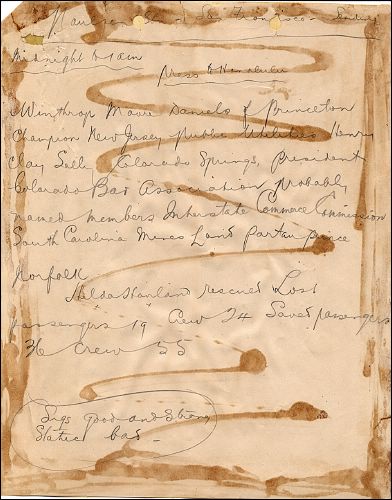 San Francisco - Sunday
Midnight to 1 am
Press to Honolulu
Winthrop Moore Daniels of Princeton
Champion New Jersey Public Utilities Henry
Clay Colorado Springs, President
Colorado Bar Association probably
named members Interstate Commerce Commission
South Carolina Land Prince
Norfolk
rescued Lost
passengers 19 Crew 24 Saved passengers
36 Crew 55
Sigs good and strong
Static bad -